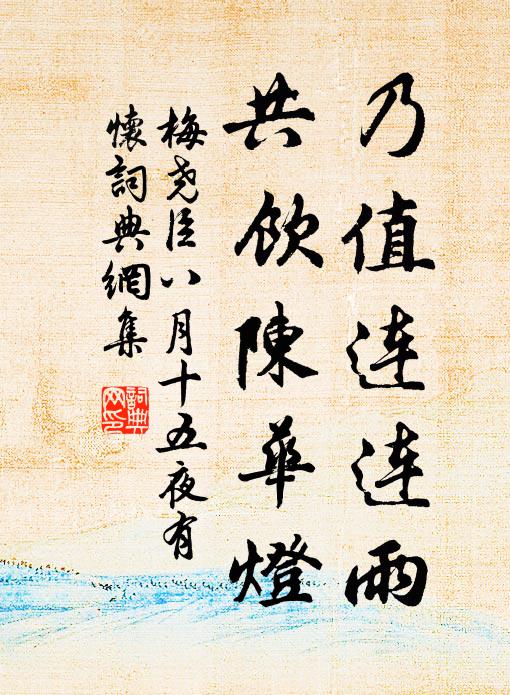 乃值连连雨
共飲陳華燈
梅尭臣八月十五夜有
懷詞典網集
詞典
网印